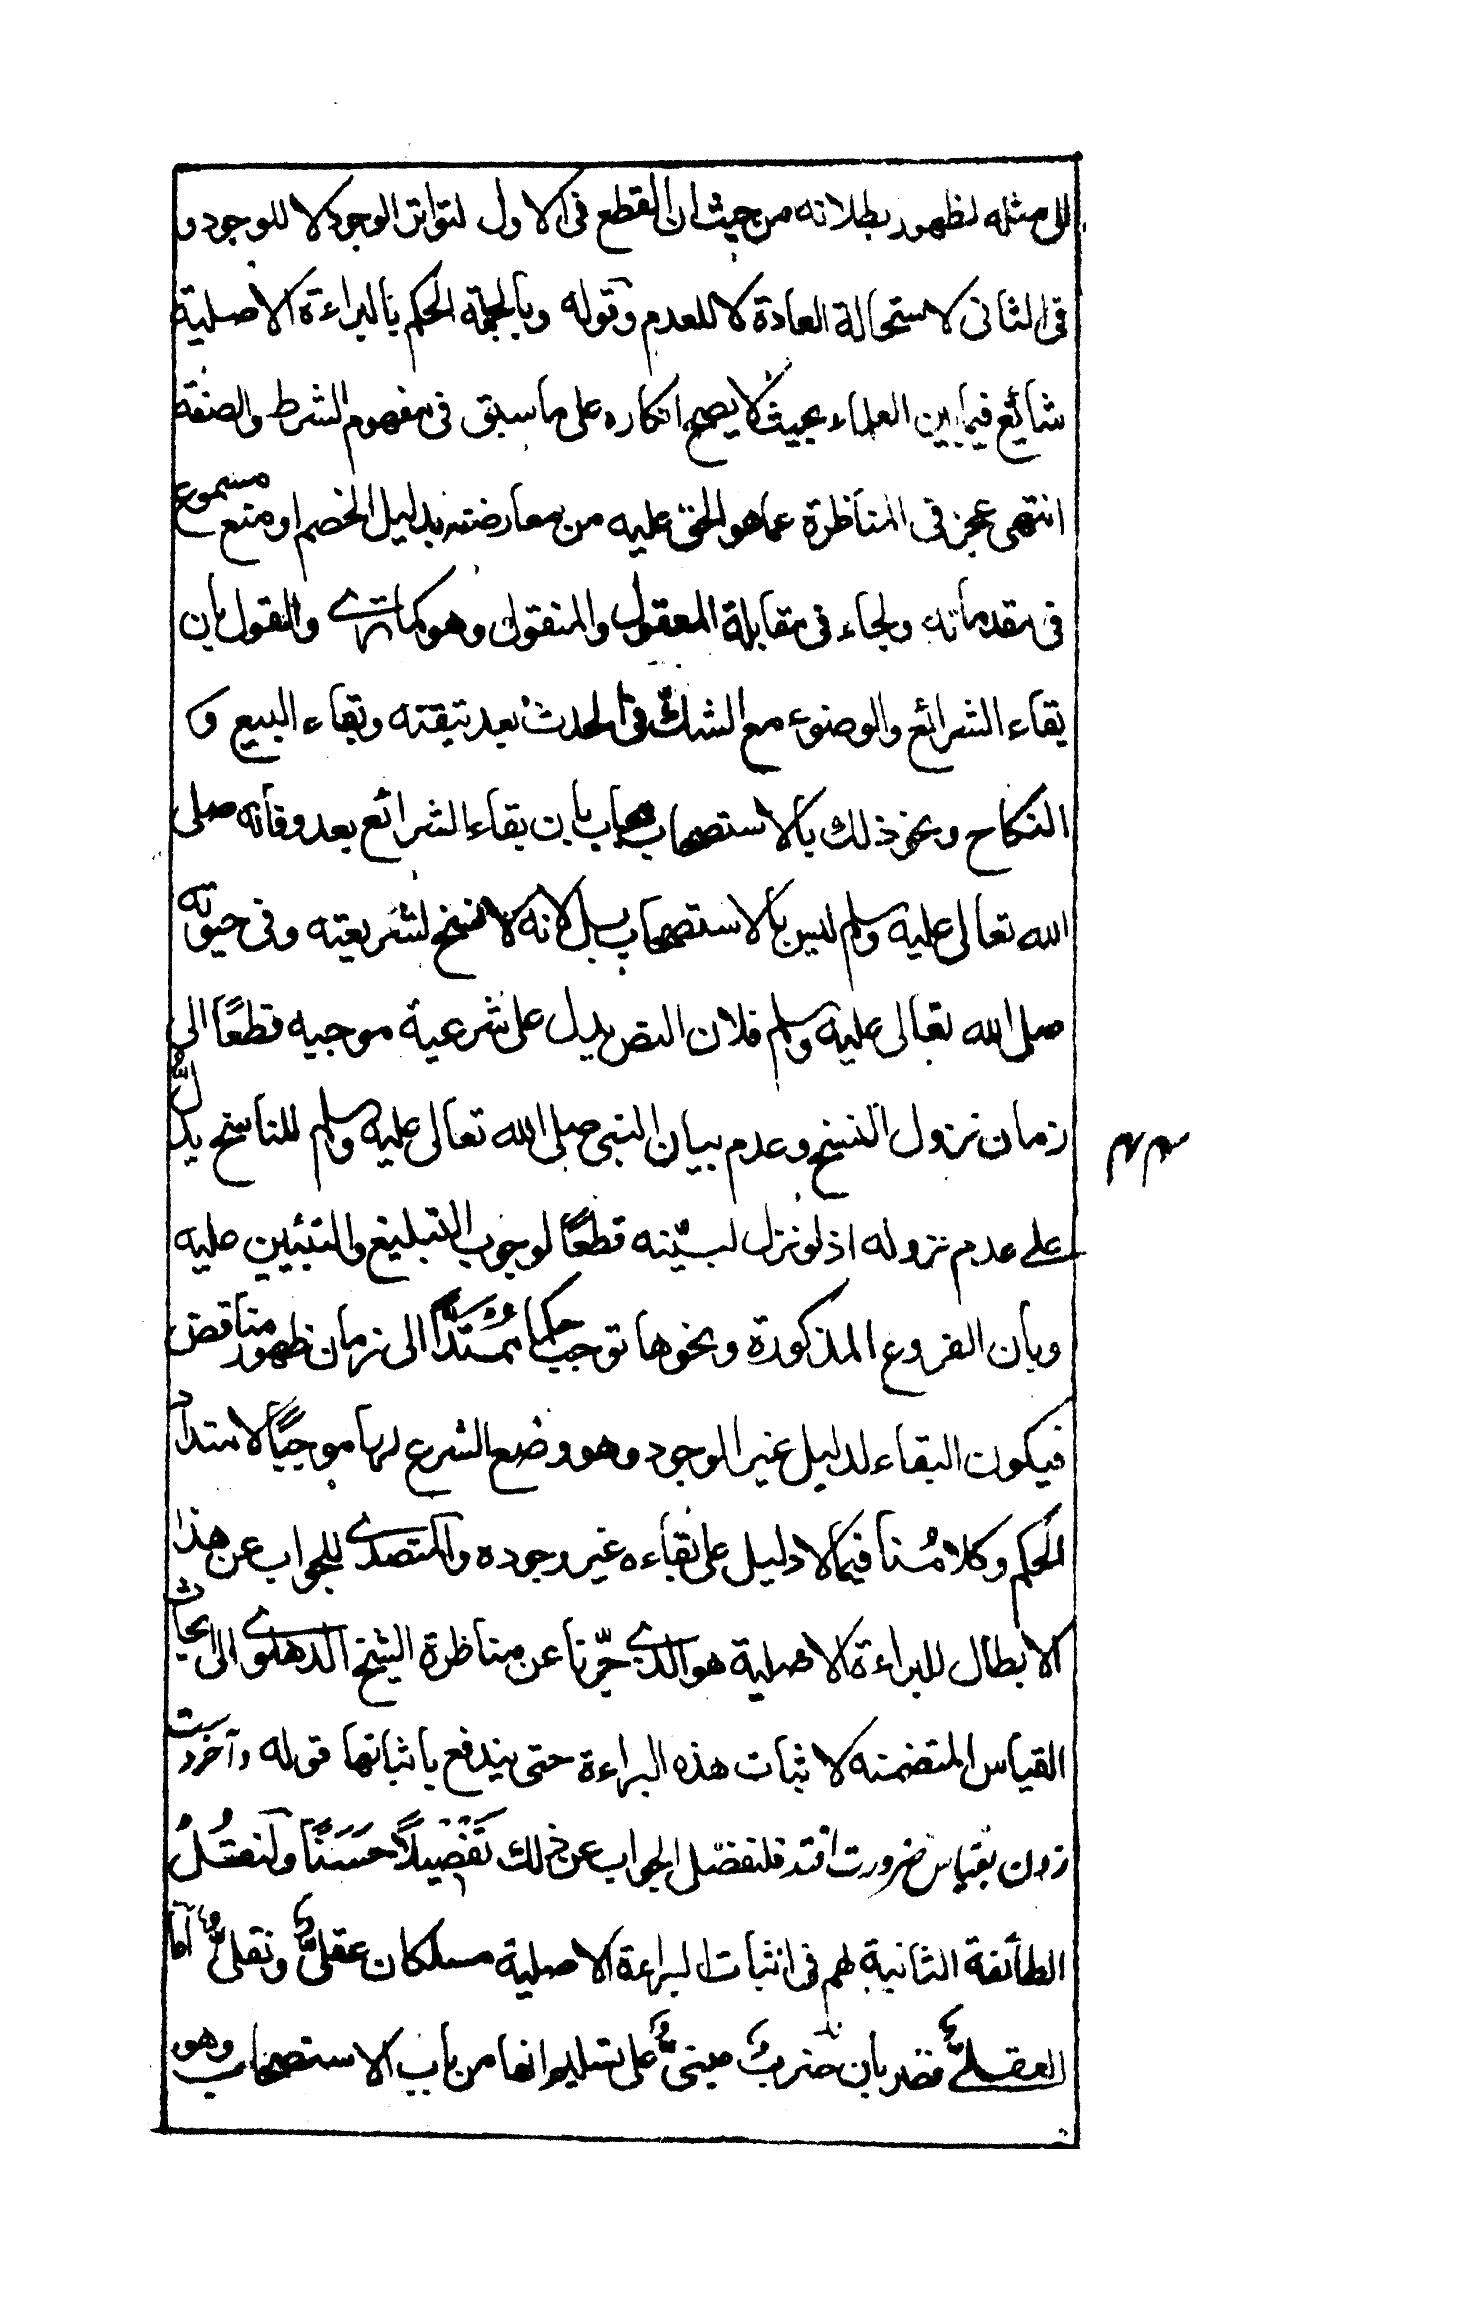 الى مثله لظهور بطلانه من حيث ان القطع فى الاول لتواتر الوجود لا للوجود و
فى الثانى لاستحالة العادة لا للعدم وقوله وبالجملة الحكم بالبراءة الاصلية
شائع فيما بين العلماء بحيث لا يصح انكاره على ما سبق فى مفهوم الشرط والصفة
انتهى عجز فى المناظرة عما هو الحق عليه من معارضته بدليل الخصم او منع مسموع
فى مقدماته ولجاء فى مقابلة المعقول والمنقول وهو كما ترى والقول بان
بقاء الشرائع والوضوء مع الشك فى الحدث بعد تيقنه وبقاء البيع و
النكاح ونحو ذلك بالاستصحاب يجاب بان بقاء الشرائع بعد وفاته صلى
الله تعالى عليه وسلم ليس بالاستصحاب بل لانه لا نسخ لشريعته وفى حيوته
صلى الله تعالى عليه وسلم فلان النص يدل على شرعية موجبه قطعًا الى
زمان نزول النسخ وعدم بيان النبى صلى الله تعالى عليه وسلم للناسخ يدلّ
على عدم نزوله اذ لو نزل لبيّنه قطعًا لوجوب التبليغ والتبيين عليه
وبان الفروع المذكورة ونحوها توجب حكما مُمْتَدًّا الى زمان ظهور مناقض
فيكون البقاء لدليل غير الوجود وهو وضع الشرع لها موجبًا لامتداد
الحكم وكلامُنا فيما لا دليل على بقاءه غير وجوده والمتصدى للجواب عن هذا
الابطال للبراءة الاصلية هو الذى جرّنا عن مناظرة الشيخ الدهلوى الى ابحاث
القياس المتضمنه لاثبات هذه البراءة حتى يندفع باثباتها قوله وآخر درست
زدن بقياس ضرورت افتد فلنفصّل الجواب عن ذلك تَفْصِيلاً حَسَنًا ولنقُلُ
الطائفة الثانية لهم فى اثبات البراءة الاصلية مسلكان عقلىٌّ ونقلىٌّ اما
العقلىُّ فقد بان ضربٌ مبنىٌّ على تسليم انها من باب الاستصحاب وهو